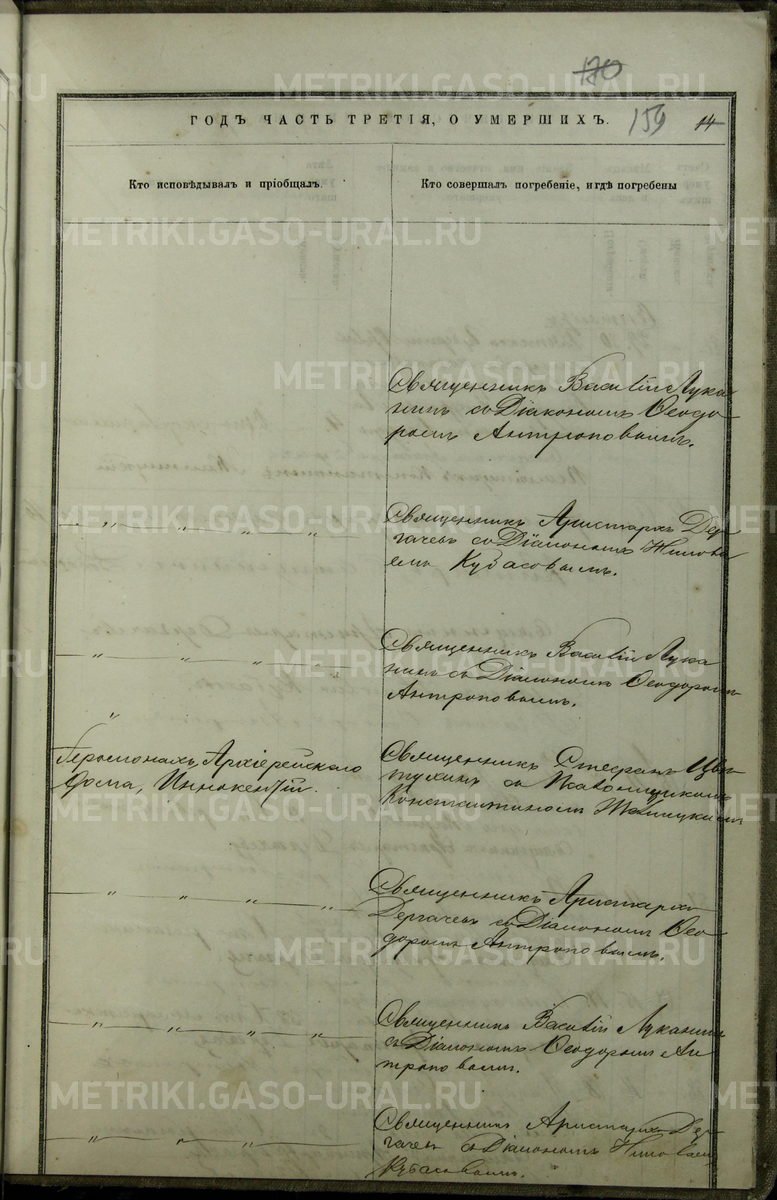 170
ГОДЪ ЧАСТЬ ТРЕТІЯ, О УМЕРШИХЪ. 159 14
Кто исповѣдывалъ и пріобщалъ.
Кто совершалъ погребеніе, и гдѣ погребены
Священникъ Василій Лука
нинъ съ Діакономъ Ѳеодо
ромъ Антроповымъ.
Священникъ Аристархъ Дер
гачевъ съ Діакономъ Никола
емъ Кубасовымъ.
Священникъ Василій Лука
нинъ съ Діакономъ Ѳеодоромъ
Антроповымъ.
Іеромонахъ, Архіерейскаго
дома, Иннокентій.
Священникъ Стефанъ
съ Псаломщикомъ
Константиномъ
Священникъ Аристархъ
Дергачевъ съ Діакономъ Ѳео
доромъ Антроповымъ.
Священникъ Василій Луканинъ
съ Діакономъ Ѳеодоромъ Ан
троповымъ.
Священникъ Аристархъ Дер
гачевъ съ Діакономъ Николаемъ
Кубасовымъ.
METRIKI.GASO-URAL.RU